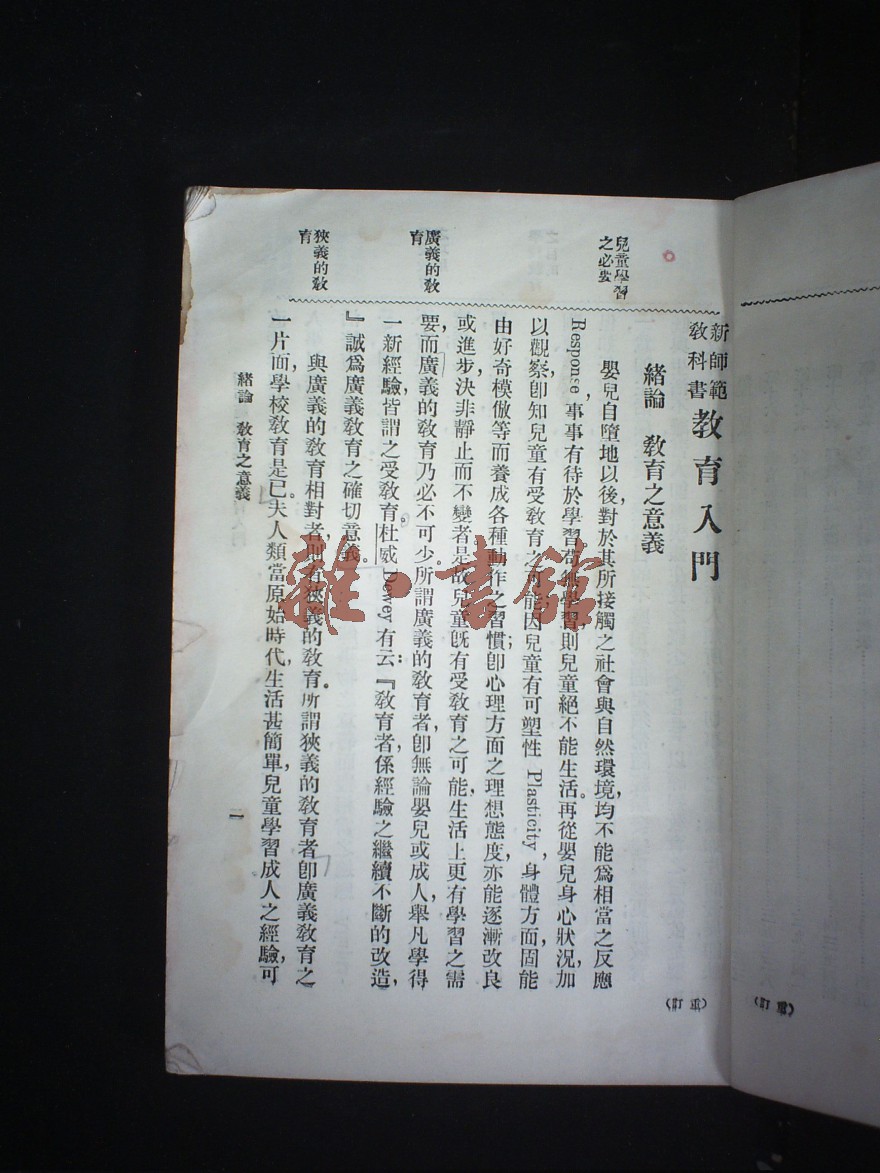 新師範
教科書
教育入門
緒論　教育之意義
兒童學習
之必要
嬰兒自墮地以後，對於其所接觸之社會與自然環境，均不能爲相當之反應
Response，事事有待於學習。苟無學習，則兒童絕不能生活。再從嬰兒身心狀況，加
以觀察，卽知兒童有受敎育之可能。因兒童有可塑性 Plasticity，身體方面，固能
由好奇模倣等而養成各種動作之習慣；卽心理方面之理想態度，亦能逐漸改良
或進步，決非靜止而不變者。是故兒童旣有受敎育之可能，生活上更有學習之需
廣義的敎
育
要，而廣義的敎育乃必不可少。所謂廣義的敎育者，卽無論嬰兒或成人，舉凡學得
一新經驗，皆謂之受敎育。杜威 Dewey 有云：『敎育者，係經驗之繼續不斷的改造，
』誠爲廣義敎育之確切意義。
狹義的敎
育
與廣義的敎育相對者，則有狹義的敎育。所謂狹義的敎育者卽廣義敎育之
一片面，學校敎育是已。夫人類當原始時代，生活甚簡單，兒童學習成人之經驗，可
緒論　敎育之意義
一
（重訂）
（重訂）
雜·書館